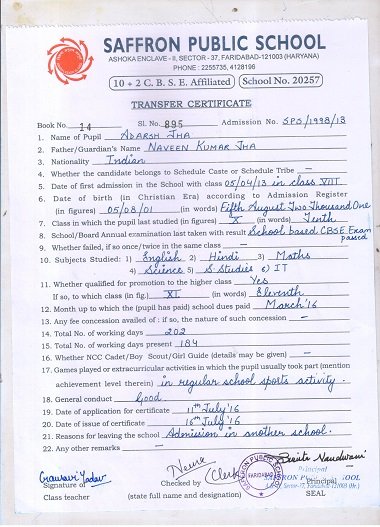 SAFFRON PUBLIC SCHOOL
ASHOKA ENCLAVE - II, SECTOR - 37, FARIDABAD-121003 (HARYANA)
PHONE : 2255735, 4128196
10 + 2 C. B. S. E. Affiliated School No. 20257
TRANSFER CERTIFICATE
Book No. 14 Sl. No. 895 Admission No. SPS/1998/13
1. Name of Pupil ADARSH JHA
2. Father/Guardian's Name NAVEEN KUMAR JHA
3. Nationality Indian
4. Whether the candidate belongs to Schedule Caste or Schedule Tribe —
5. Date of first admission in the School with class 05/04/13 in class VIII
6. Date of birth (in Christian Era) according to Admission Register
(in figures) 05/08/01 (in words) Fifth August Two Thousand One
7. Class in which the pupil last studied (in figures) X (in words) Tenth
8. School/Board Annual examination last taken with result School based CBSE Exam passed
9. Whether failed, if so once/twice in the same class —
10. Subjects Studied : 1) English 2) Hindi 3) Maths
4) Science 5) S. Studies 6) IT
11. Whether qualified for promotion to the higher class Yes
If so, to which class (in fig.) XI (in words) Eleventh
12. Month up to which the (pupil has paid) school dues paid March'16
13. Any fee concession availed of : if so, the nature of such concession —
14. Total No. of working days 202
15. Total No. of working days present 184
16. Whether NCC Cadet/Boy Scout/Girl Guide (details may be given) —
17. Games played or extracurricular activities in which the pupil usually took part (mention
achievement level therein) in regular school sports activity.
18. General conduct Good
19. Date of application for certificate 11th July'16
20. Date of issue of certificate 16th July'16
21. Reasons for leaving the school Admission in another school.
22. Any other remarks —
Gauravi Yadav
Signature of
Class teacher
Checked by Clerk
(state full name and designation)
SAFFRON PUBLIC SCHOOL
FARIDABAD
Principal
Principal
SEAL